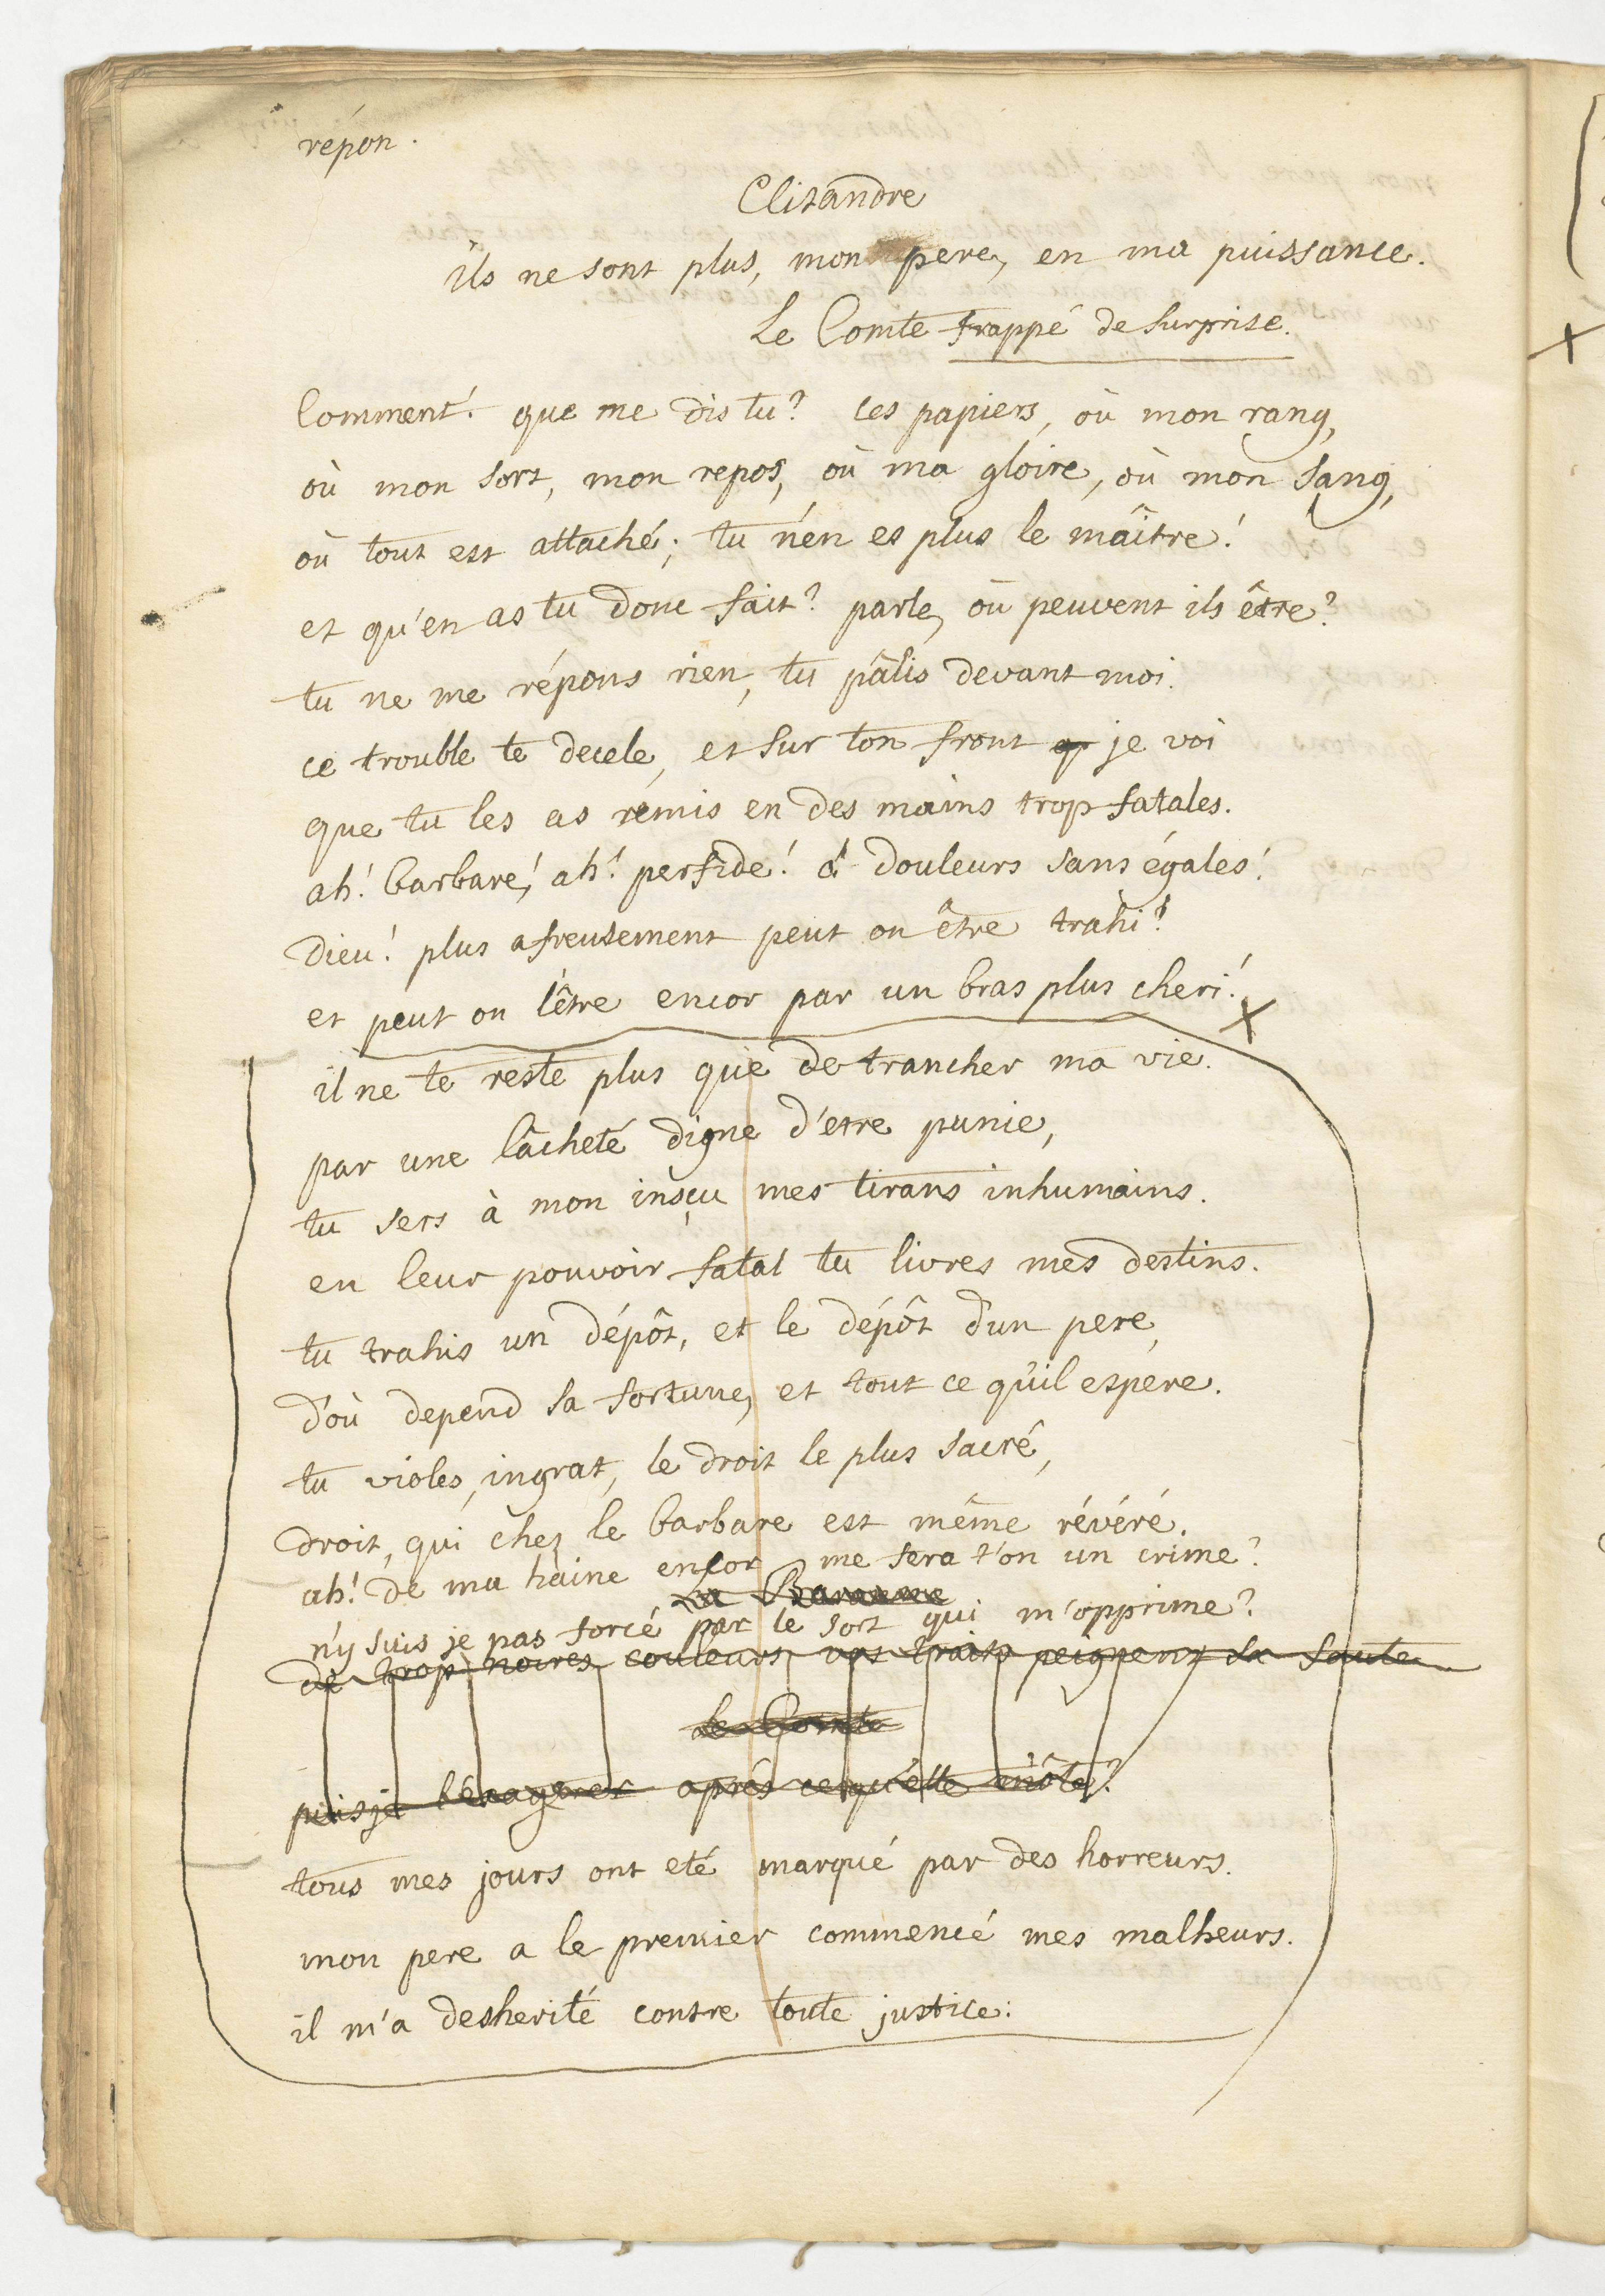 répon.
Clitandre
ils ne sont plus, mon pere, en ma puissance.
Le Comte frappé de surprise.
Comment! que me dis tu? ces papiers, où mon rang,
où mon sort, mon repos, où ma gloire, où mon sang,
où tout est attaché; tu n'en es plus le maître!
et qu'en as tu donc fait? parle, où peuvent ils être?
tu ne me répons rien, tu pâlis devant moi.
ce trouble te decele, et sur ton front je voi
que tu les as remis en des mains trop fatales.
ah! barbare! ah! perfide! ô douleurs sans égales!
Dieu! plus afreusement peut on être trahi?
et peut on l'être encor par un bras plus cheri!
il ne te reste plus que de trancher ma vie.
par une lâcheté digne d'etre punie,
tu sers à mon insçu mes tirans inhumains.
en leur pouvoir fatal tu livres mes destins.
tu trahis un dépôt, et le dépôt d'un pere,
d'où depend sa fortune, et tout ce qu'il espere.
tu violes, ingrat, le droit le plus sacré,
droit, qui chez le barbare est même révéré.
ah! de ma haine encor me fera t'on un crime?
La Baronne
n'y suis je pas forcé par le sort qui m'opprime?
de trop noires couleurs vos traits peignent sa faute
Le Comte
puis je l'éxagerer aprés ce qu'elle m'ôte?
tous mes jours ont eté marqué par des horreurs.
mon pere a le premier commencé mes malheurs.
il m'a desherité contre toute justice: